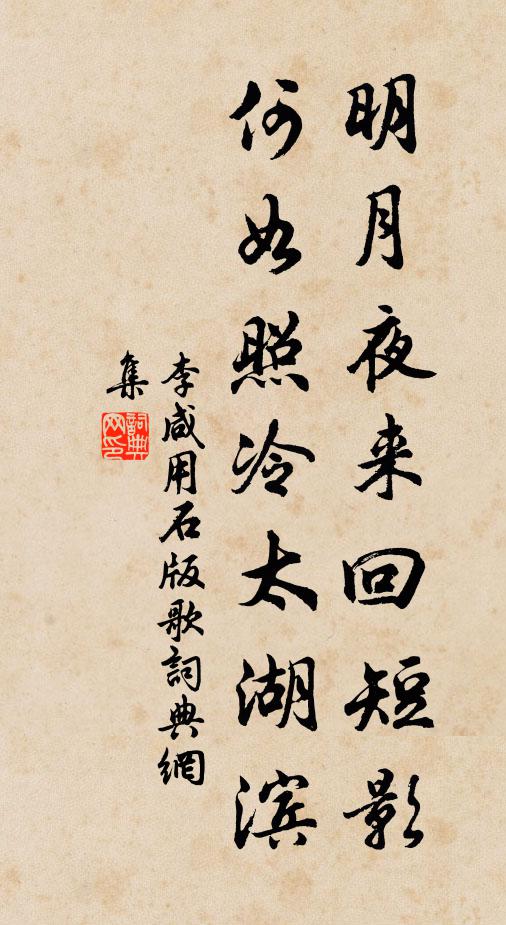 明月夜来回短影
何如照冷太湖滨
李咸用石版歌詞典網
集
詞典
网印